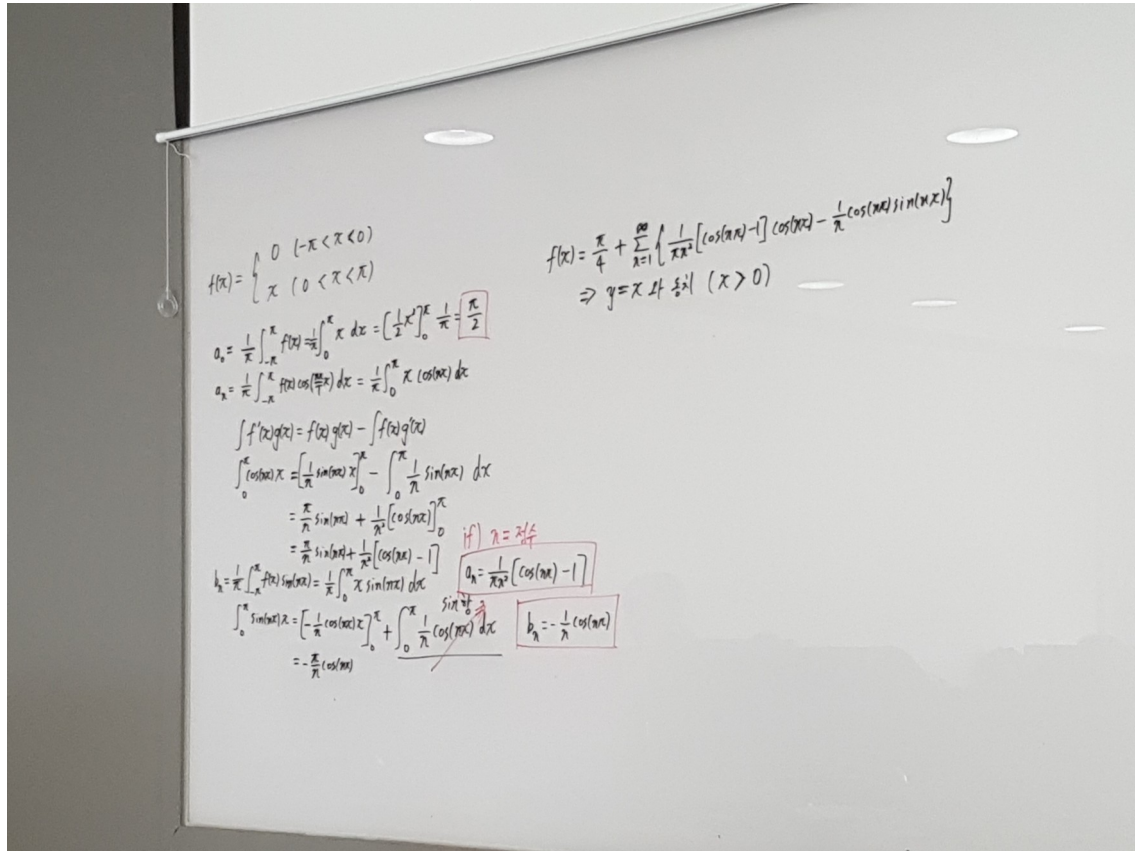 f(x) = { 0 (-π < x < 0)
x (0 < x < π)
a₀ = 1/π ∫_{-π}^{π} f(x) = 1/π ∫_0^π x dx = [1/2 x²]_0^π 1/π = π/2
aₙ = 1/π ∫_{-π}^{π} f(x) cos(nπ/π x) dx = 1/π ∫_0^π x cos(nx) dx
∫ f'(x)g(x) = f(x)g(x) - ∫ f(x)g'(x)
∫_0^π cos(nx) x = [1/n sin(nx) x]_0^π - ∫_0^π 1/n sin(nx) dx
= π/n sin(nπ) + 1/n² [cos(nx)]_0^π
= π/n sin(nπ) + 1/n² [cos(nπ) - 1]
if) n = 정수
aₙ = 1/(πn²) [cos(nπ) - 1]
bₙ = 1/π ∫_{-π}^{π} f(x) sin(nx) = 1/π ∫_0^π x sin(nx) dx
∫_0^π sin(nx) x = [-1/n cos(nx) x]_0^π + ∫_0^π 1/n cos(nx) dx
sin항
= -π/n cos(nπ)
bₙ = -1/n cos(nπ)
f(x) = π/4 + Σ_{n=1}^{∞} { 1/(πn²) [cos(nπ) - 1] cos(nx) - 1/n cos(nπ) sin(nx) }
⇒ y = x 와 동치 (x > 0)